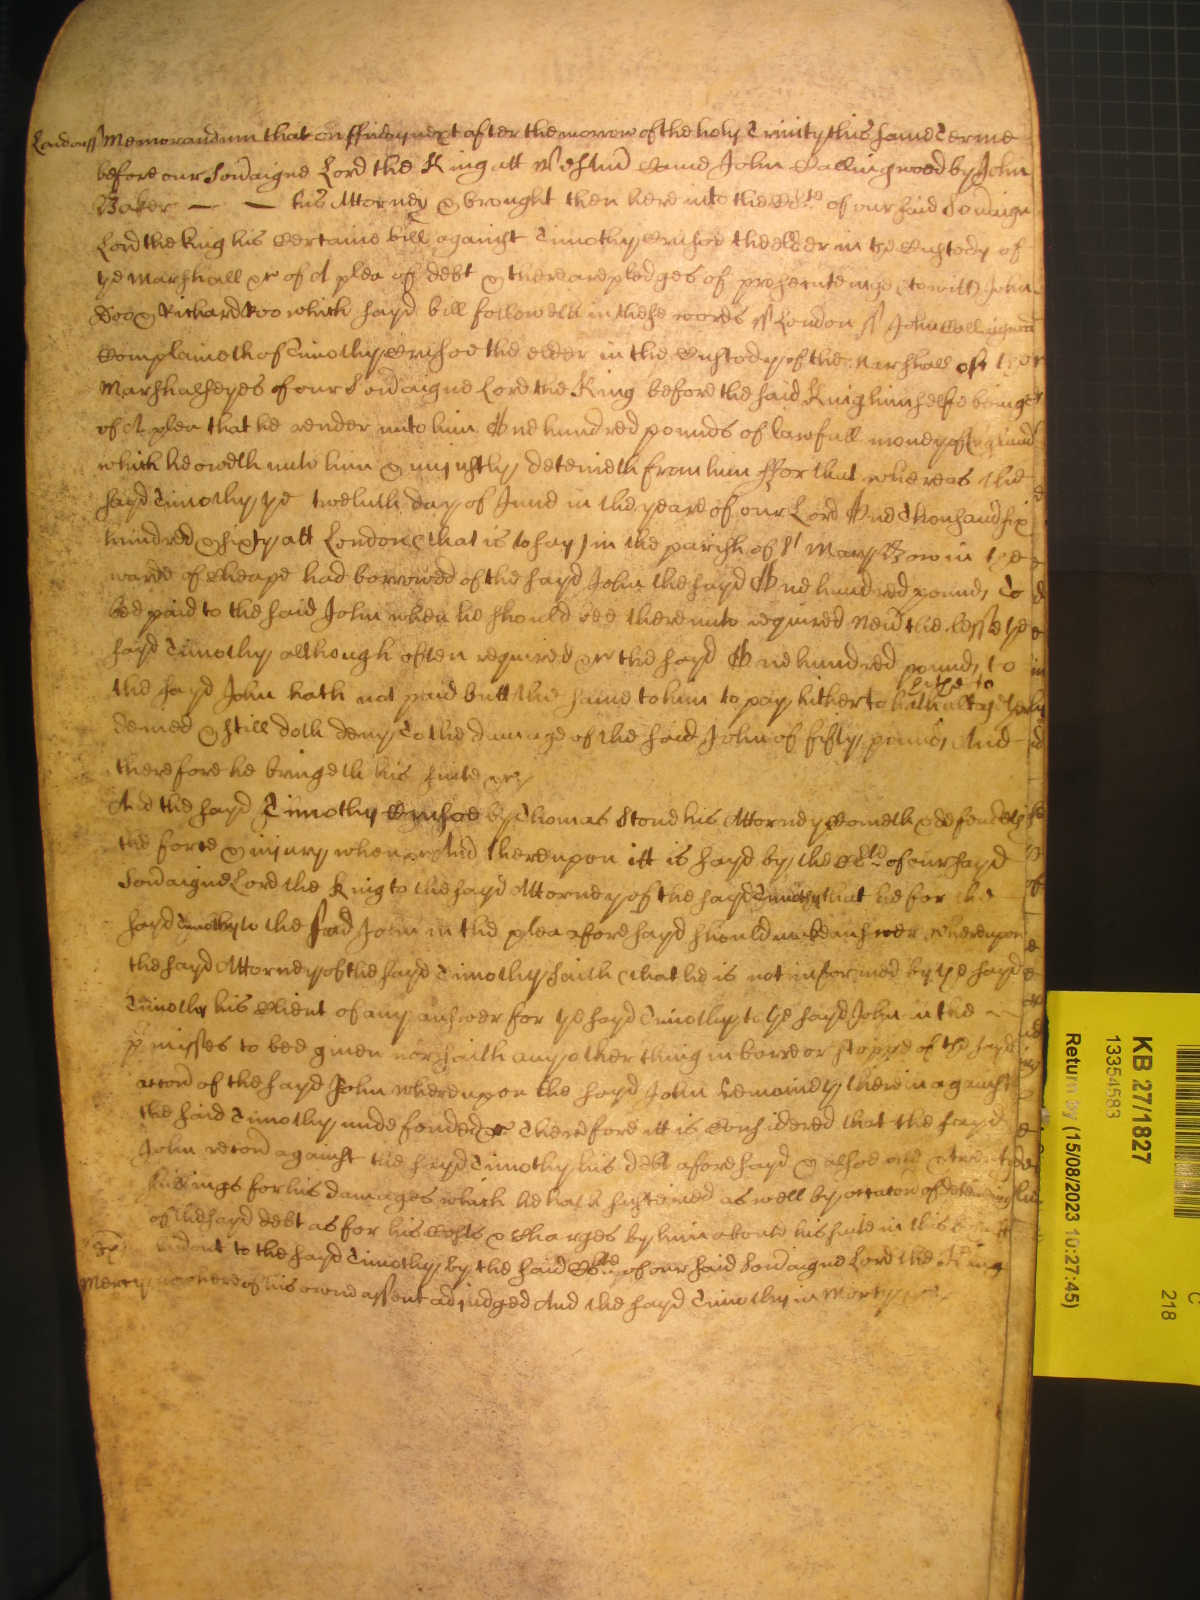 London ss Memorandum that on ffriday next after the morrow of the holy Trinity this same Terme
before our Sov'aigne Lord the King att Westm' Came John Collingwood by John
Baker — — his Attorney & brought then here into the Co:te of our said Sov'aigne
Lord the King his Certaine bill against Timothy Crusoe the elder in the Custody of
ye Marshall &c of A plea of debt & there are pledges of prosecuteinge (to witt) John
Doo & Richard Roo which sayd bill followeth in these words ss London ss John Collingwood
Complaineth of Timothy Crusoe the elder in the Custody of the Marshall of the
Marshalseyes of our Sov'aigne Lord the King before the said King himselfe being
of A plea that he render unto him One hundred pounds of lawfull money of England
which he oweth unto him & unjustly deteineth from him ffor that whereas the
sayd Timothy ye twelveth day of June in the yeare of our Lord One Thousand six
hundred & sixty att London (that is to say) in the parish of St Mary Bow in the
warde of Cheape had borrowed of the sayd John the sayd One hundred pounds To
bee paid to the said John when he should bee thereunto required Nev'thelesse ye
sayd Timothy although often required &c the sayd One hundred pounds to
the sayd John hath not paid butt the same to him to pay hitherto hath altogether
denied & still doth deny To the damage of the said John of fifty pounds And
therefore he bringeth his suite &c
And the sayd Timothy Crusoe by Thomas Stone his Attorney Cometh & defendeth
the force & injury when &c And thereupon itt is sayd by the Co:te of our sayd
Sov'aigne Lord the King to the sayd Attorney of the sayd Timothy that he for the
sayd Timothy to the said John in the plea aforesayd should make answer whereupon
the sayd Attorney of the sayd Timothy saith that he is not informed by ye sayd
Timothy his Client of any answer for ye sayd Timothy to ye sayd John in the
p'misses to bee given nor saith any other thing in barre or stoppe of the sayd
accon of the sayd John whereupon the sayd John remaineth therein against
the said Timothy undefended &c Therefore itt is Considered that the sayd
John recov' against the sayd Timothy his debt aforesayd & alsoe one & twenty
shillings for his damages which he hath susteined as well by occasion of deteining
of the sayd debt as for his Costs & Charges by him aboute his suite in this
to the sayd Timothy by the said Co:te of our said Sov'aigne Lord the King
Mercy now here of his owne assent adjudged And the sayd Timothy in Mercy &c
KB 27/1827
13354583
Return by (15/08/2023 10:27:45)
C
218